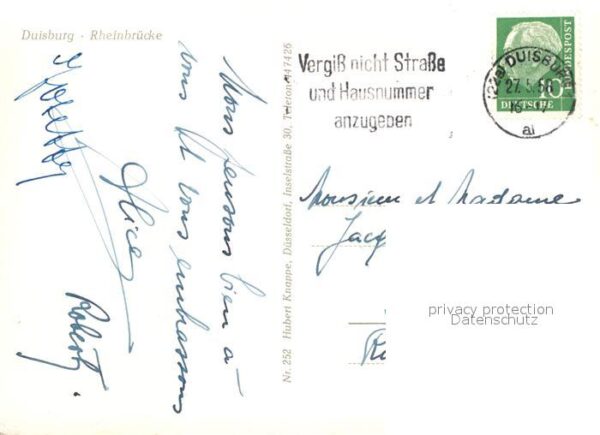 Duisburg - Rheinbrücke
Nous pensons bien à
vous et vous embrassons
Alice
Robert.
Nr. 252 Hubert Knappe, Düsseldorf, Inselstraße 30, Telefon 447426
Vergiß nicht Straße
und Hausnummer
anzugeben
(22a) DUISBURG
27.5.56
al
10
DEUTSCHE
BUNDESPOST
Monsieur et Madame
Jacq
privacy protection
Datenschutz